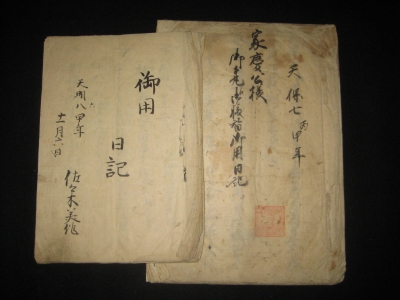 天保七丙申年
家慶公様
御用日記
御用
日記
天明八申年
十一月六日
佐々木美作